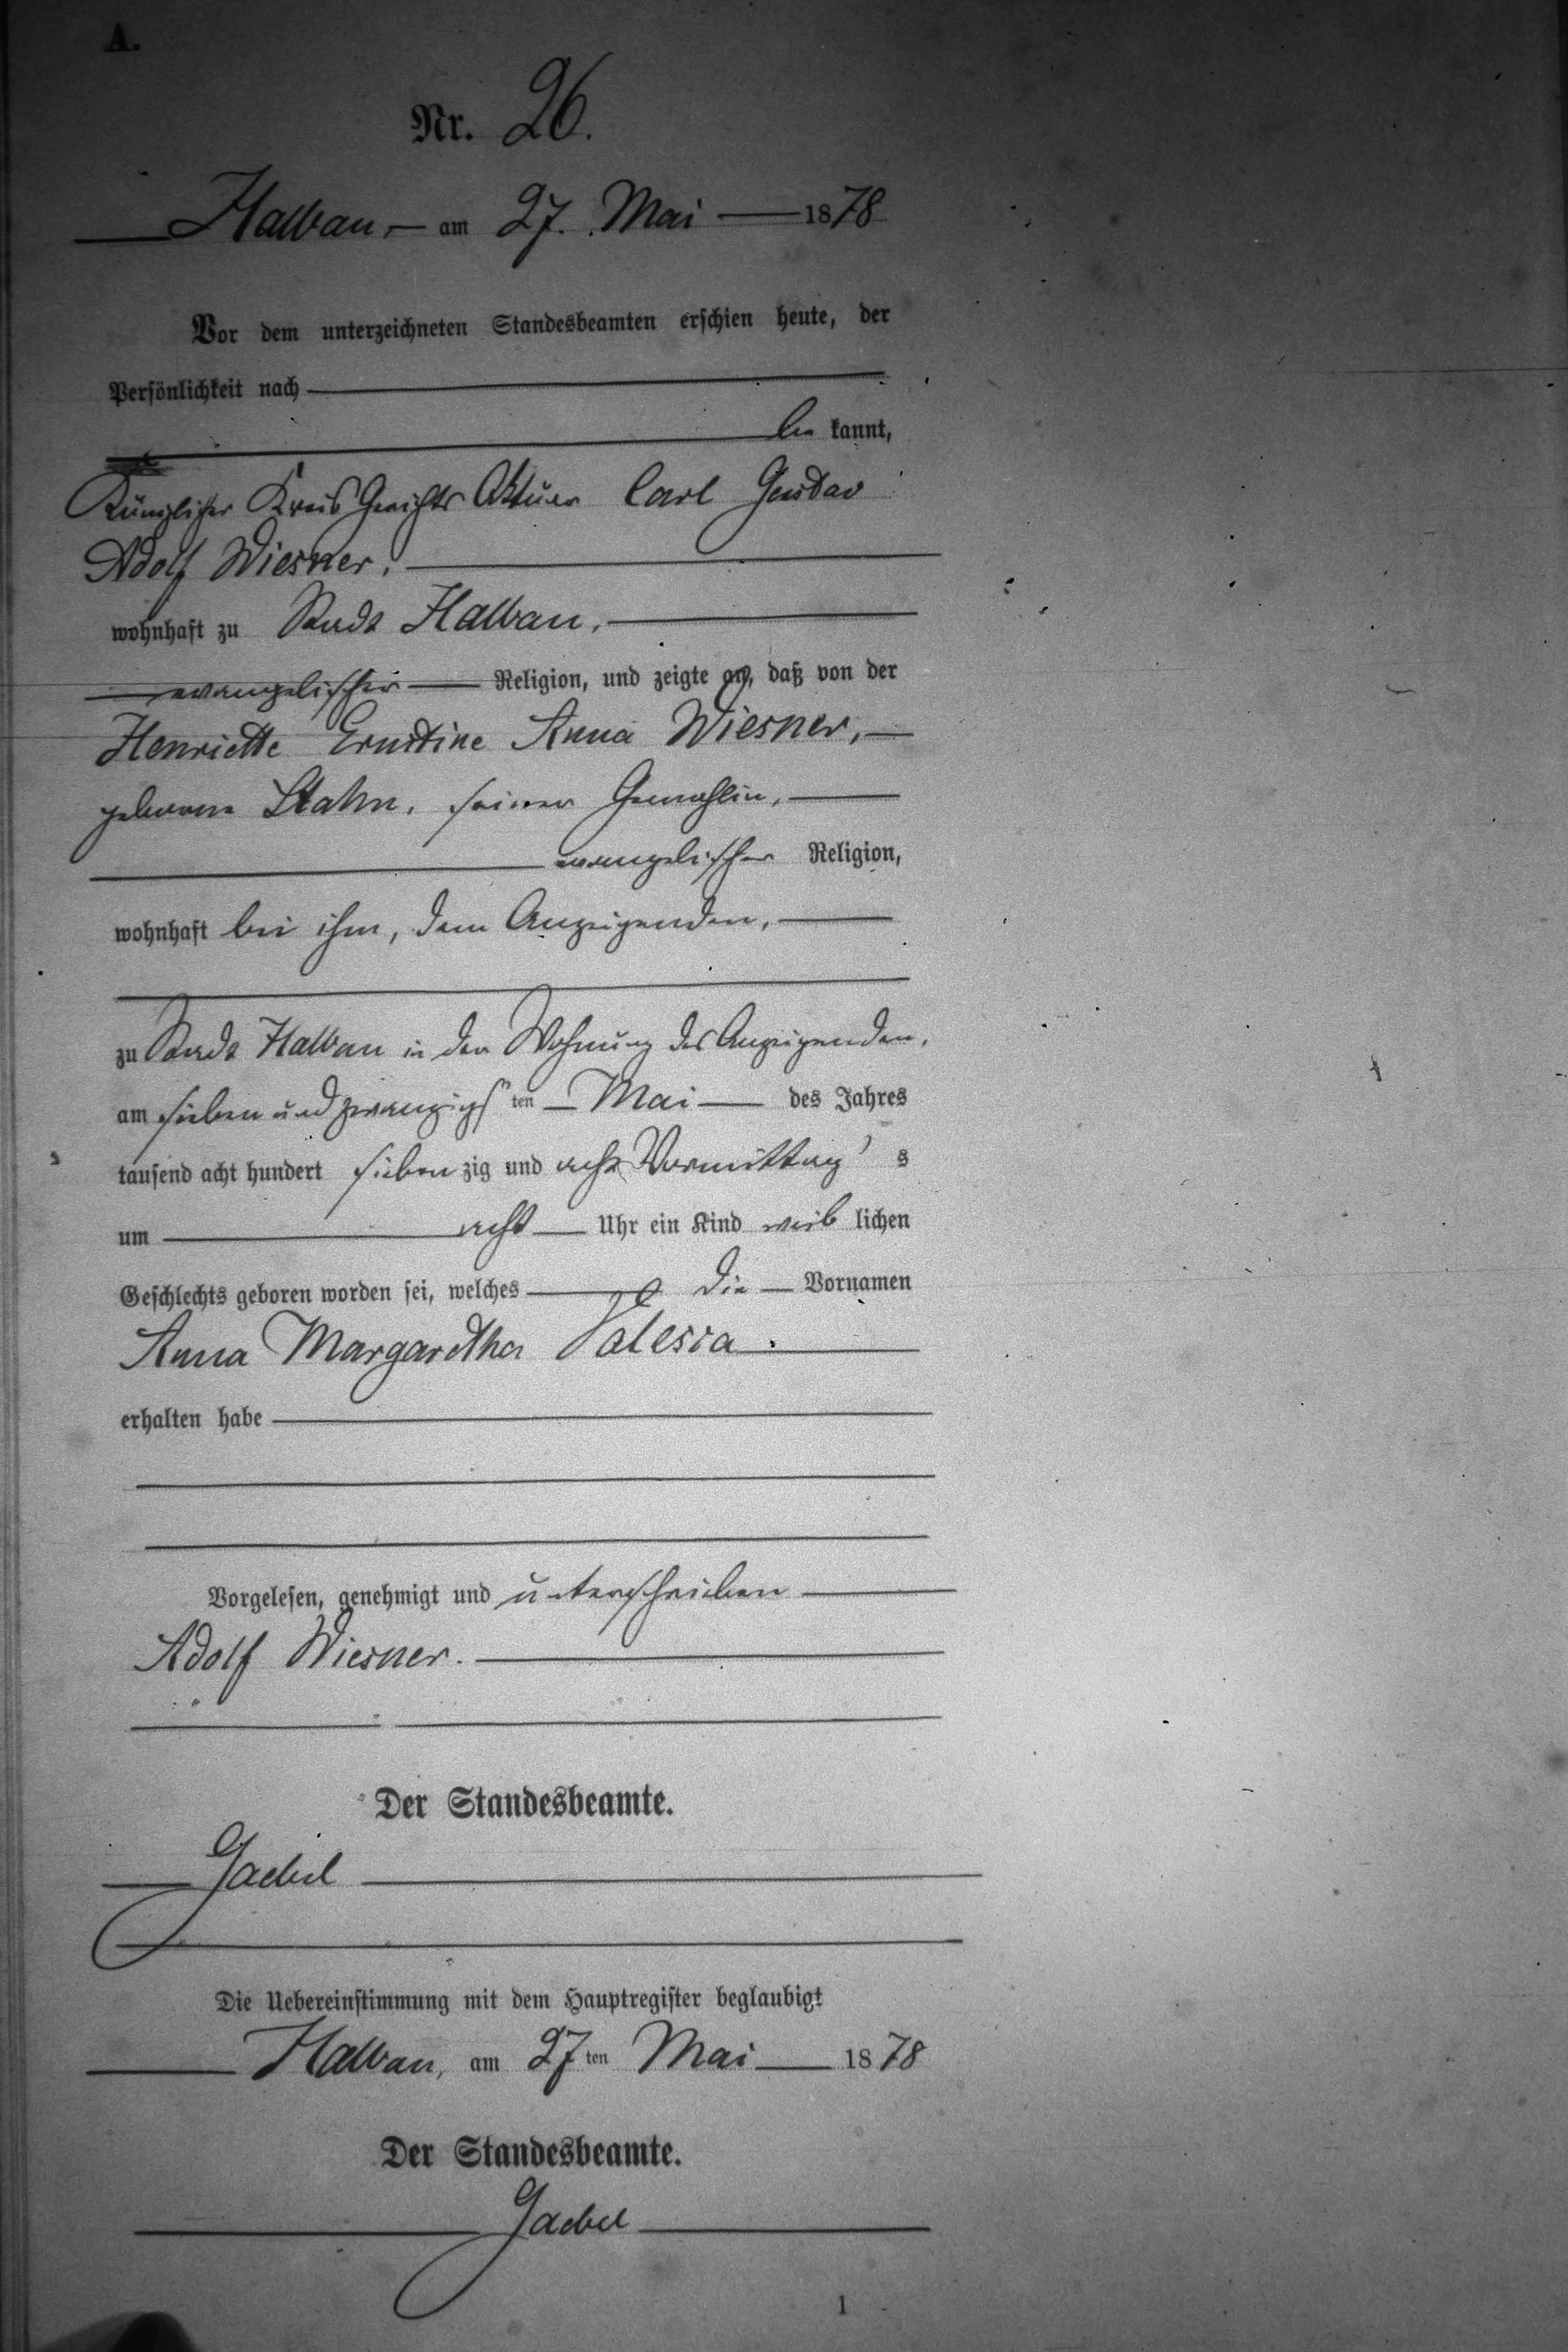 A.
Nr. 26.
Halbau, am 27. Mai 1878
Vor dem unterzeichneten Standesbeamten erschien heute, der
Persönlichkeit nach
be kannt,
Königlicher Kreis Gerichts Aktuar Carl Gustav
Adolf Wiesner,
wohnhaft zu Stadt Halbau,
evangelischer Religion, und zeigte an, daß von der
Henriette Ernstine Anna Wiesner,
geborene Stahn, seiner Gemahlin,
evangelischer Religion,
wohnhaft bei ihm, dem Anzeigenden,
zu Stadt Halbau in der Wohnung des Anzeigenden,
am sieben und zwanzigsten Mai des Jahres
tausend acht hundert siebenzig und acht Vormittags
um acht Uhr ein Kind weiblichen
Geschlechts geboren worden sei, welches die Vornamen
Anna Margaretha Valesca.
erhalten habe
Vorgelesen, genehmigt und unterschrieben
Adolf Wiesner.
Der Standesbeamte.
Gaebel
Die Uebereinstimmung mit dem Hauptregister beglaubigt
Halbau, am 27ten Mai 1878
Der Standesbeamte.
Gaebel
1